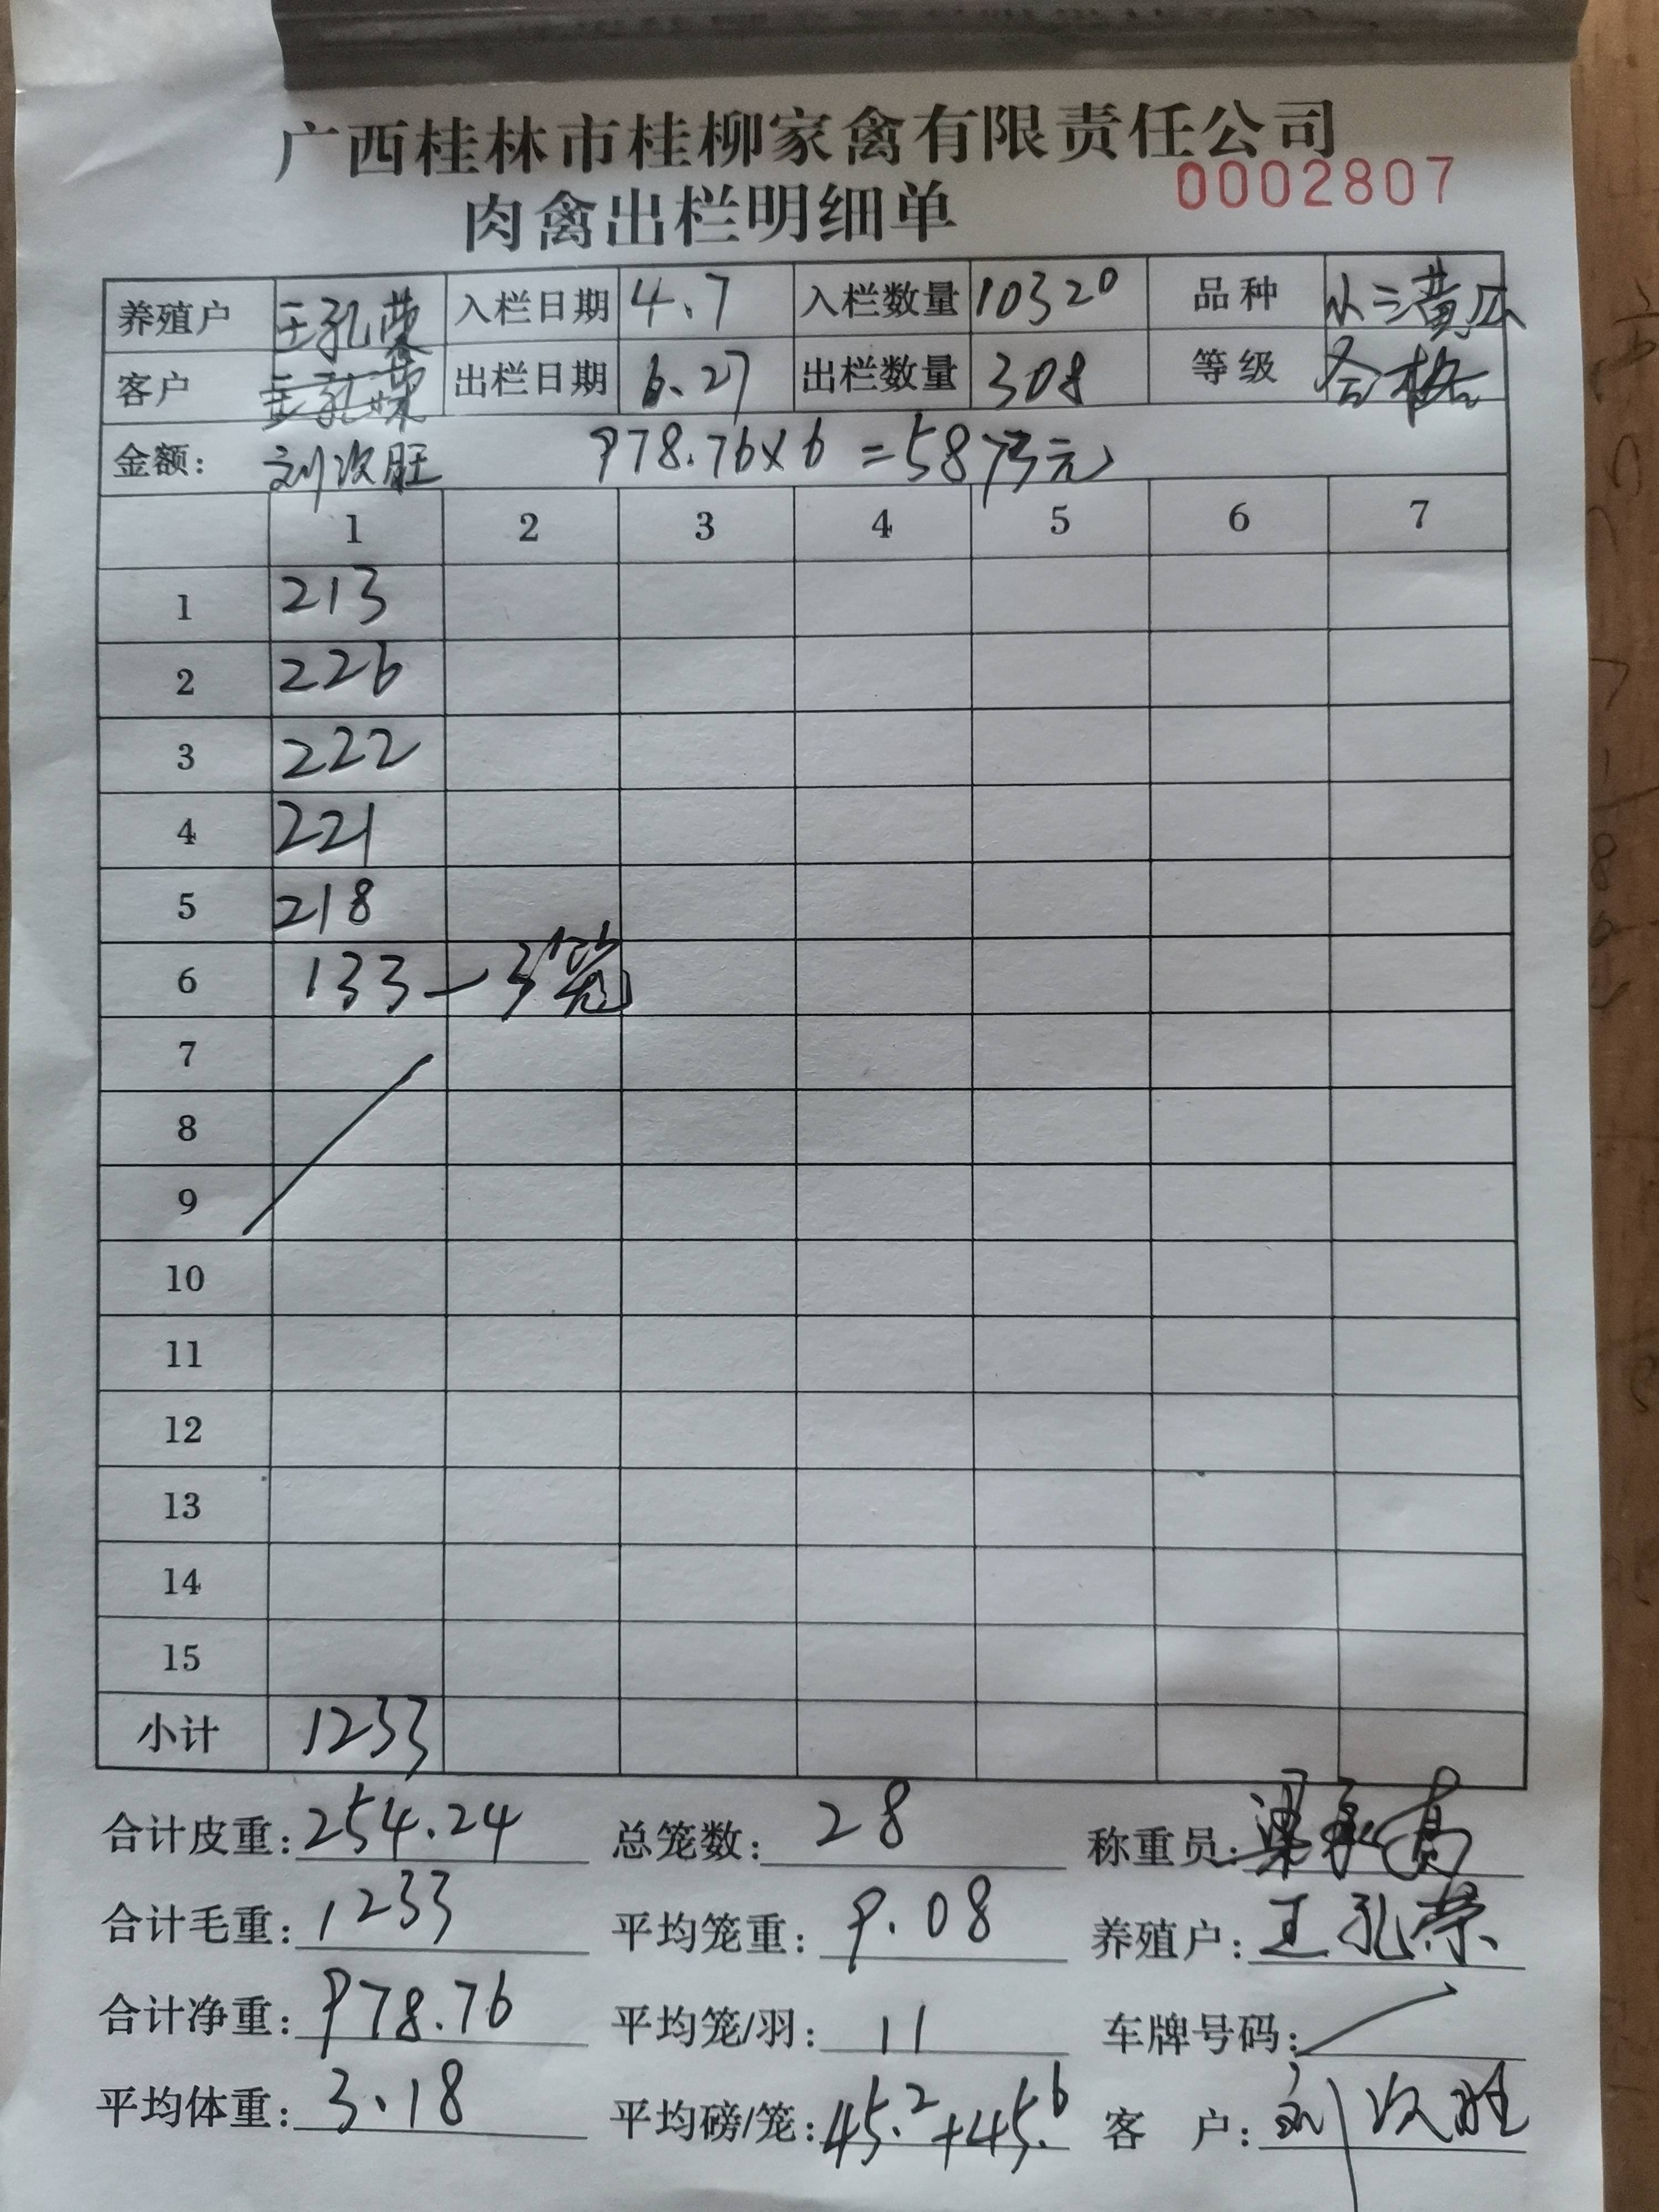 广西桂林市桂柳家禽有限责任公司
肉禽出栏明细单 0002807
养殖户 王孔荣 入栏日期 4.7 入栏数量 10320 品种 三黄
客户 王孔荣 出栏日期 6.27 出栏数量 308 等级 合格
金额: 刘次旺 978.76×6=587元
1 2 3 4 5 6 7
1 213
2 226
3 222
4 221
5 218
6 133—3笼
7
8
9
10
11
12
13
14
15
小计 1233
合计皮重: 254.24 总笼数: 28 称重员:
合计毛重: 1233 平均笼重: 9.08 养殖户: 王孔荣
合计净重: 978.76 平均笼/羽: 11 车牌号码:
平均体重: 3.18 平均磅/笼: 45.2+45.6 客 户: 刘次旺